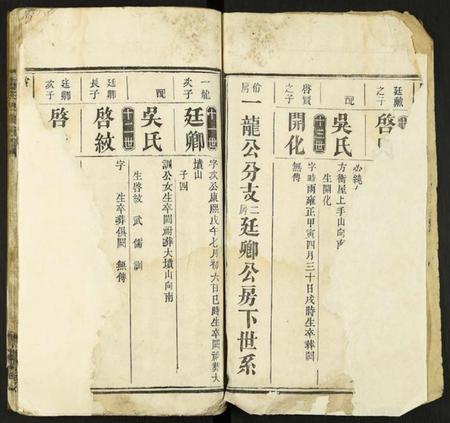 廷勳之子
啓
必繞
方衝屋上手山向
配
吳氏
生開化
啓賢之子
十三世
開化
字時雨雍正甲寅四月三十日戌時生卒葬闕
無傳
一龍公分支二房廷卿公房下世系
一龍次子
十一世
廷卿
字次公康熙戊午七月初六日巳時生卒闕祔葬大
墳山
子四
配
吳氏
訓公女生卒闕祔葬大墳山向南
生啓紋 武 儒 訓
廷卿長子
十二世
啓紋
字 生卒葬俱闕 無傳
廷卿次子
啓